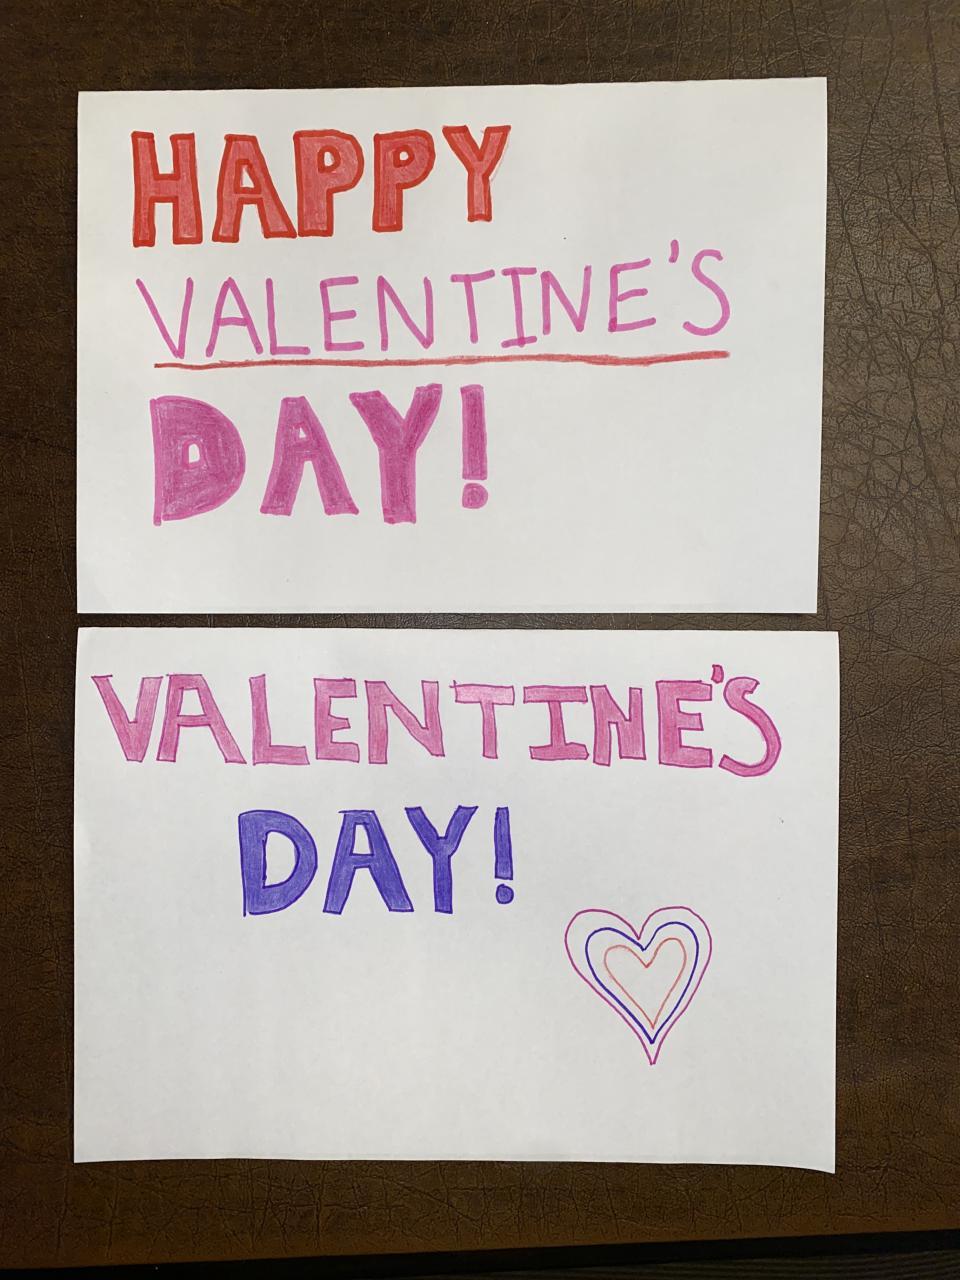 HAPPY
VALENTINE'S
DAY!
VALENTINE'S
DAY!